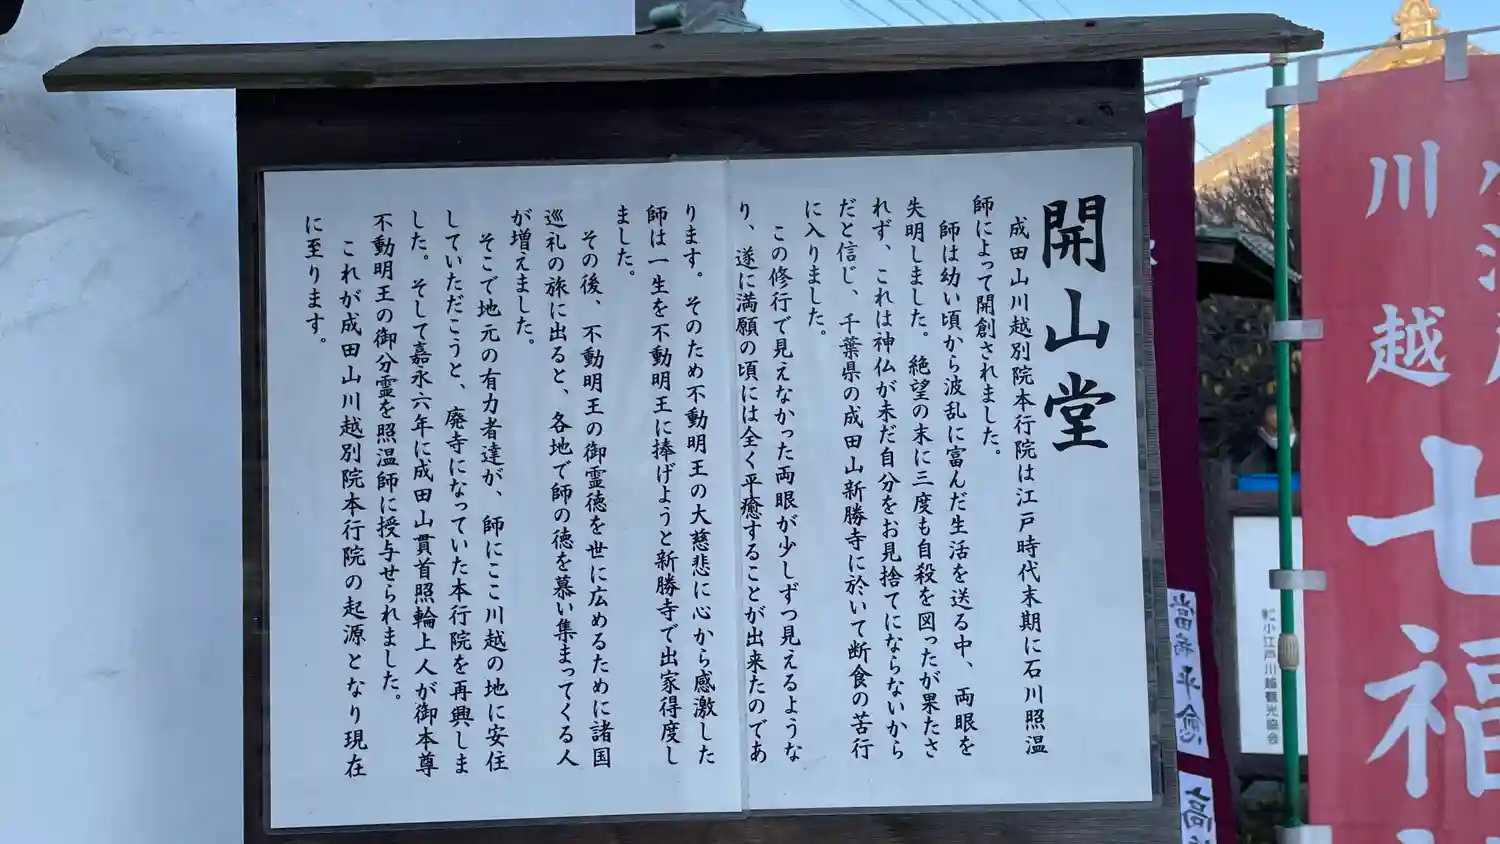 開山堂
成田山川越別院本行院は江戸時代末期に石川照温
師によって開創されました。
師は幼い頃から波乱に富んだ生活を送る中、両眼を
失明しました。絶望の末に三度も自殺を図ったが果たさ
れず、これは神仏が未だ自分をお見捨てにならないから
だと信じ、千葉県の成田山新勝寺に於いて断食の苦行
に入りました。
この修行で見えなかった両眼が少しずつ見えるような
り、遂に満願の頃には全く平癒することが出来たのであ
ります。そのため不動明王の大慈悲に心から感激した
師は一生を不動明王に捧げようと新勝寺で出家得度し
ました。
その後、不動明王の御霊徳を世に広めるために諸国
巡礼の旅に出ると、各地で師の徳を慕い集まってくる人
が増えました。
そこで地元の有力者達が、師にここ川越の地に安住
していただこうと、廃寺になっていた本行院を再興しま
した。そして嘉永六年に成田山貫首照輪上人が御本尊
不動明王の御分霊を照温師に授与せられました。
これが成田山川越別院本行院の起源となり現在
に至ります。
川越
七福
當病平癒
小江戸川越観光協会